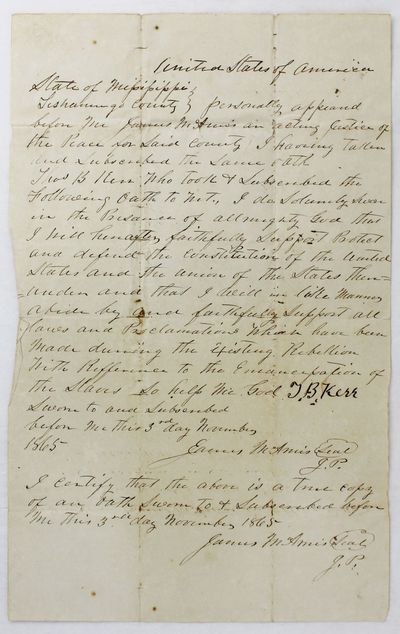 United States of America
State of Missisippi
Tishamingo County } Personally appeard
before me James McAmis an acting Justice of
the Peace for Said County I Having taken
and Subscribed the Same oath
Thos B Kerr, Who took & Subscribed the
Following Oath to Wit, I do Solumly Swear
in the Presance of allmighty God that
I will hereafter faithfully Support Protect
and defend the Constitution of the United
States and the union of the States there-
under and that I will in like Manner
abide by and faithfully Support all
laws and Proclamations Which have been
Made durning the Existing Rebellion
With Refference to the Emancepation of
the Slaves So help Me God T. B. Kerr
Sworn to and Subscribed
before me this 3rd day November
1865
James McAmis Seal
J.P.
I certify that the above is a true copy
of an Oath Sworn to & Subscribed before
Me this 3rd day November 1865
James McAmis Seal
J.P.